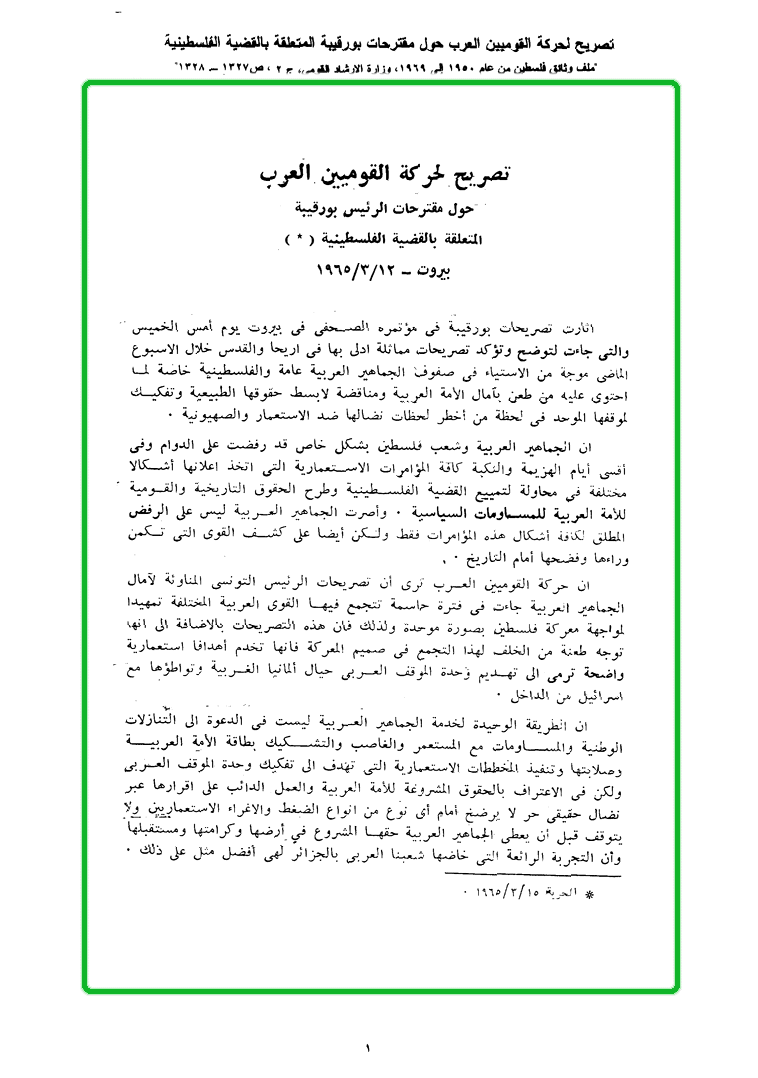 تصريح لحركة القوميين العرب حول مقترحات بورقيبة المتعلقة بالقضية الفلسطينية
"ملف وثائق فلسطين من عام ١٩٥٠ إلى ١٩٦٩، وزارة الارشاد القومي، ج ٢ ، ص ١٣٢٧ – ١٣٢٨"
تصريح لحركة القوميين العرب
حول مقترحات الرئيس بورقيبة
المتعلقة بالقضية الفلسطينية ( * )
بيروت – ١٩٦٥/٣/١٢
اثارت تصريحات بورقيبة فى مؤتمره الصحفى فى بيروت يوم أمس الخميس
والتى جاءت لتوضح وتؤكد تصريحات مماثلة ادلى بها فى اريحا والقدس خلال الاسبوع
الماضى موجة من الاستياء فى صفوف الجماهير العربية عامة والفلسطينية خاصة لما
احتوى عليه من طعن بآمال الأمة العربية ومناقضة لابسط حقوقها الطبيعية وتفكيك
لموقفها الموحد فى لحظة من أخطر لحظات نضالها ضد الاستعمار والصهيونية ٠
ان الجماهير العربية وشعب فلسطين بشكل خاص قد رفضت على الدوام وفى
أقسى أيام الهزيمة والنكبة كافة المؤامرات الاستعمارية التى اتخذ اعلانها أشكالا
مختلفة فى محاولة لتمييع القضية الفلسطينية وطرح الحقوق التاريخية والقومية
للأمة العربية للمساومات السياسية ٠ وأصرت الجماهير العربية ليس على الرفض
المطلق لكافة أشكال هذه المؤامرات فقط ولكن أيضا على كشف القوى التى تكمن
وراءها وفضحها أمام التاريخ ٠
ان حركة القوميين العرب ترى أن تصريحات الرئيس التونسى المناوئة لآمال
الجماهير العربية جاءت فى فترة حاسمة تتجمع فيها القوى العربية المختلفة تمهيدا
لمواجهة معركة فلسطين بصورة موحدة ولذلك فان هذه التصريحات بالاضافة الى انها
توجه طعنة من الخلف لهذا التجمع فى صميم المعركة فانها تخدم أهدافا استعمارية
واضحة ترمى الى تهديم وحدة الموقف العربى حيال ألمانيا الغربية وتواطؤها مع
اسرائيل من الداخل ٠
ان الطريقة الوحيدة لخدمة الجماهير العربية ليست فى الدعوة الى التنازلات
الوطنية والمساومات مع المستعمر والغاصب والتشكيك بطاقة الأمة العربية
وصلابتها وتنفيذ المخططات الاستعمارية التى تهدف الى تفكيك وحدة الموقف العربى
ولكن فى الاعتراف بالحقوق المشروعة للأمة العربية والعمل الدائب على اقرارها عبر
نضال حقيقى حر لا يرضخ أمام أى نوع من انواع الضغط والاغراء الاستعماريين ولا
يتوقف قبل أن يعطى الجماهير العربية حقها المشروع في أرضها وكرامتها ومستقبلها
وأن التجربة الرائعة التى خاضها شعبنا العربى بالجزائر لهى أفضل مثل على ذلك ٠
* الحرية ١٩٦٥/٣/١٥ ٠
١